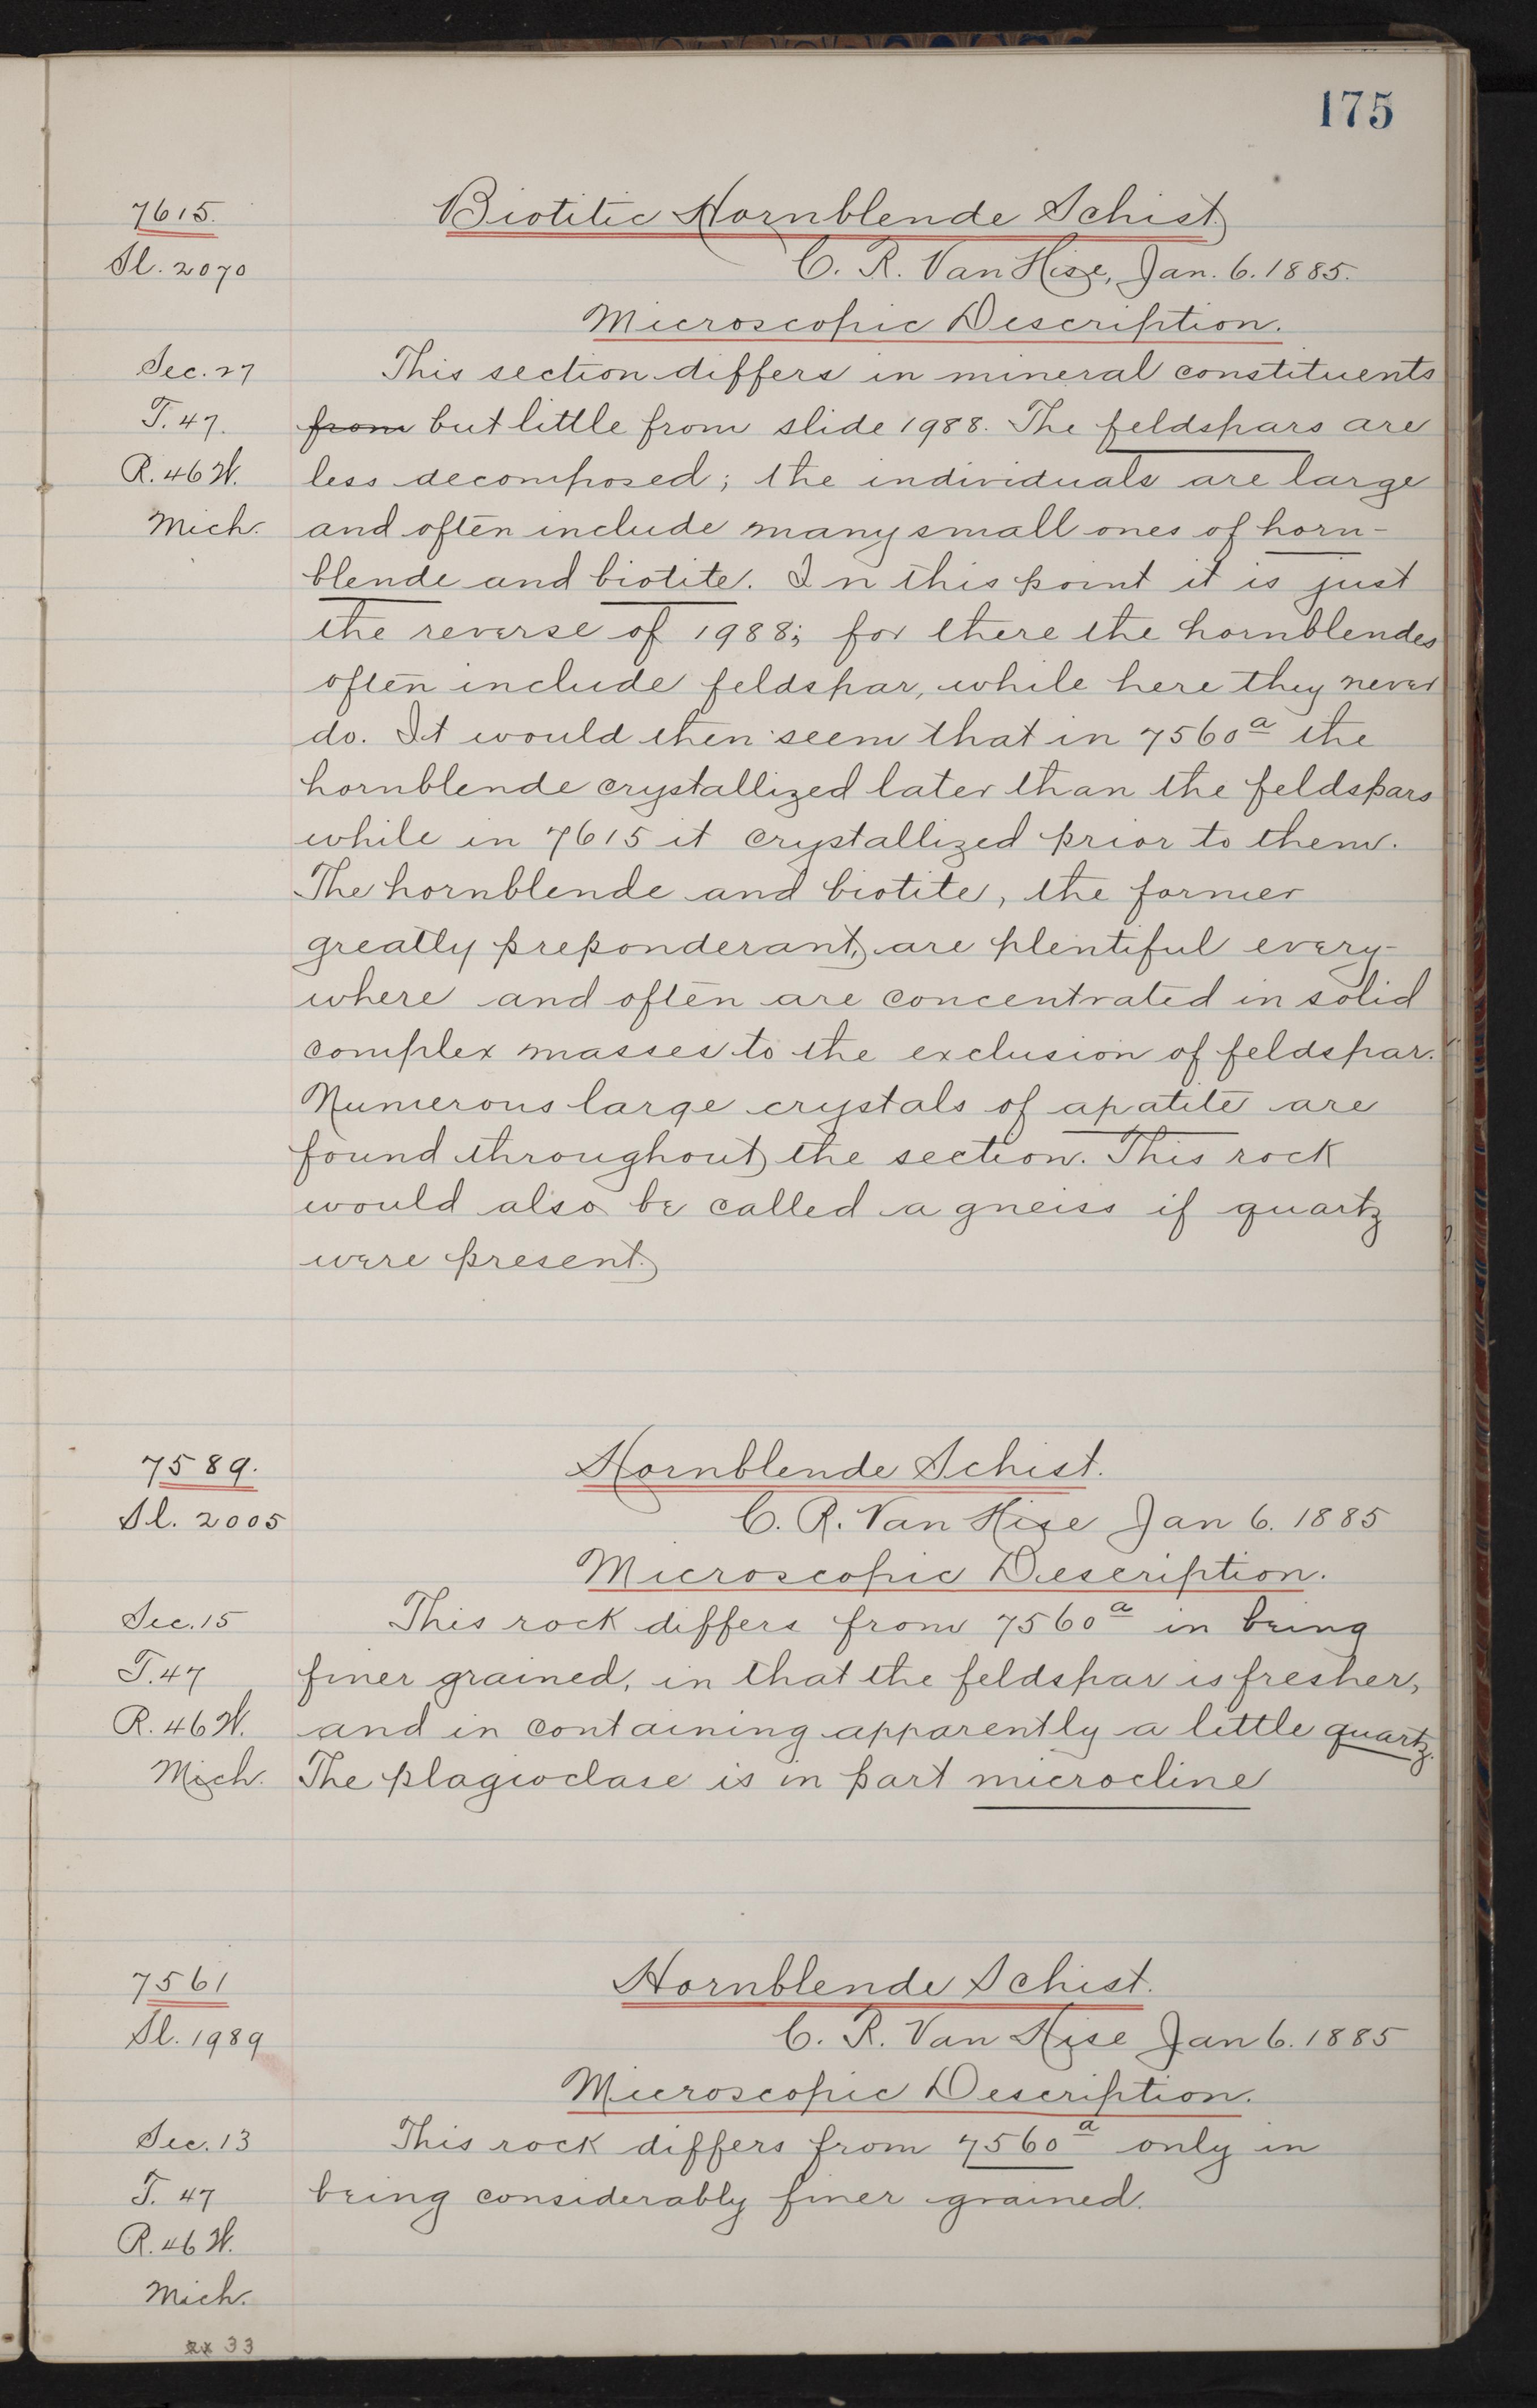 175
7615.
Biotitic Hornblende Schist.
Sl. 2070
C. R. Van Hise, Jan. 6. 1885.
Microscopic Description.
Sec. 27
T. 47.
R. 46 W.
Mich.
This section differs in mineral constituents
from but little from slide 1988. The feldspars are
less decomposed; the individuals are large
and often include many small ones of horn-
blende and biotite. In this point it is just
the reverse of 1988; for there the hornblendes
often include feldspar, while here they never
do. It would then seem that in 7560a the
hornblende crystallized later than the feldspars
while in 7615 it crystallized prior to them.
The hornblende and biotite, the former
greatly preponderant, are plentiful every-
where and often are concentrated in solid
complex masses to the exclusion of feldspar.
Numerous large crystals of apatite are
found throughout the section. This rock
would also be called a gneiss if quartz
were present.
7589.
Hornblende Schist.
Sl. 2005
C. R. Van Hise Jan 6. 1885
Microscopic Description.
Sec. 15
T. 47
R. 46 W.
Mich.
This rock differs from 7560a in being
finer grained, in that the feldspar is fresher,
and in containing apparently a little quartz.
The plagioclase is in part microcline
7561
Hornblende Schist.
Sl. 1989
C. R. Van Hise Jan 6. 1885
Microscopic Description.
Sec. 13
T. 47
R. 46 W.
Mich.
This rock differs from 7560a only in
being considerably finer grained.
33